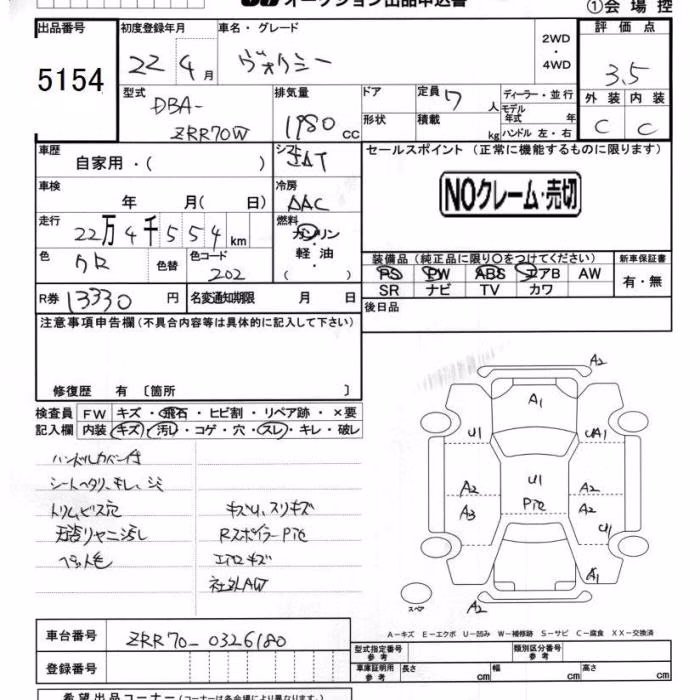 オークション出品申込書
①会場控
出品番号
5154
初度登録年月
22 4月
車名・グレード
ヴォクシー
2WD
・
4WD
評価点
3.5
外装 内装
C C
型式
DBA-
ZRR70W
排気量
1980 cc
ドア
形状
定員 7 人
積載 kg
ディーラー・並行
モデル年式 年
ハンドル 左・右
車歴
自家用・( )
シフト
IAT
セールスポイント (正常に機能するものに限ります)
NOクレーム・売切
車検
年 月( 日)
冷房
AAC
走行
22万4千554km
燃料
ガソリン
・
軽油
・
( )
色
色替
色コード
202
装備品 (純正品に限り○をつけてください)
新車保証書
PS PW ABS エアB AW
SR ナビ TV カワ
有・無
R券 13330円
名変通知期限 月 日
後日品
注意事項申告欄 (不具合内容等は具体的に記入して下さい)
修復歴 有 〔箇所 〕
検査員記入欄
FW キズ・飛石・ヒビ割・リペア跡・×要
内装 キズ・汚レ・コゲ・穴・スレ・キレ・破レ
ハンドルカバー付
シートヘタリ、キレ、シミ
トリムビス穴
天張リヤニ汚レ
ペット毛
キズU、スリキズ
Rスポイラー Pハゲ
エアロキズ
社外AW
A2
A1
U1 UA1
U1
A2 A2
Pハゲ
A3 A2
U1
A1
A2
スペア
A−キズ E−エクボ U−凹み W−補修跡 S−サビ C−腐食 XX−交換済
車台番号
ZRR70-0326180
登録番号
型式指定番号
参考
類別区分番号
参考
車庫証明用
参考
長さ cm 幅 cm 高さ cm
希望出品コーナー (コーナーは各会場により異なります。)